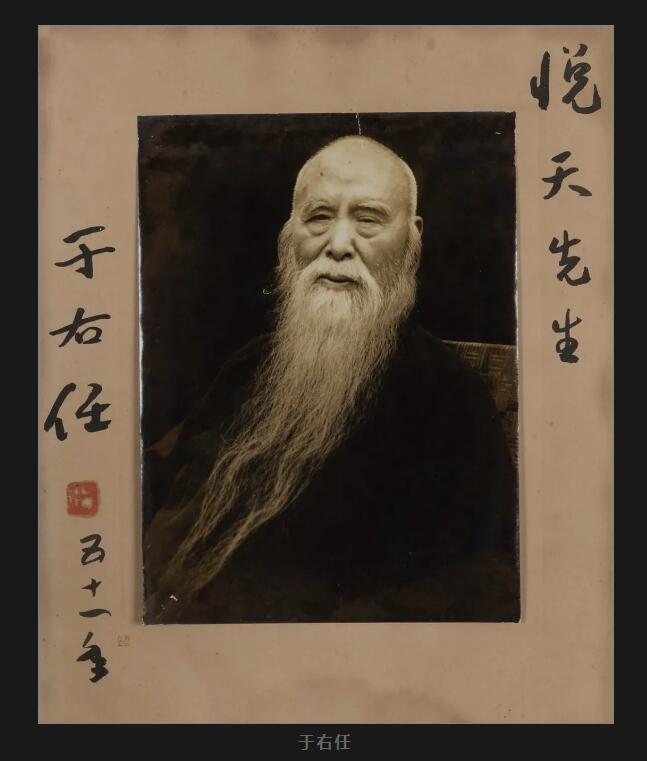 悦天先生
于右任
五十一年
于右任